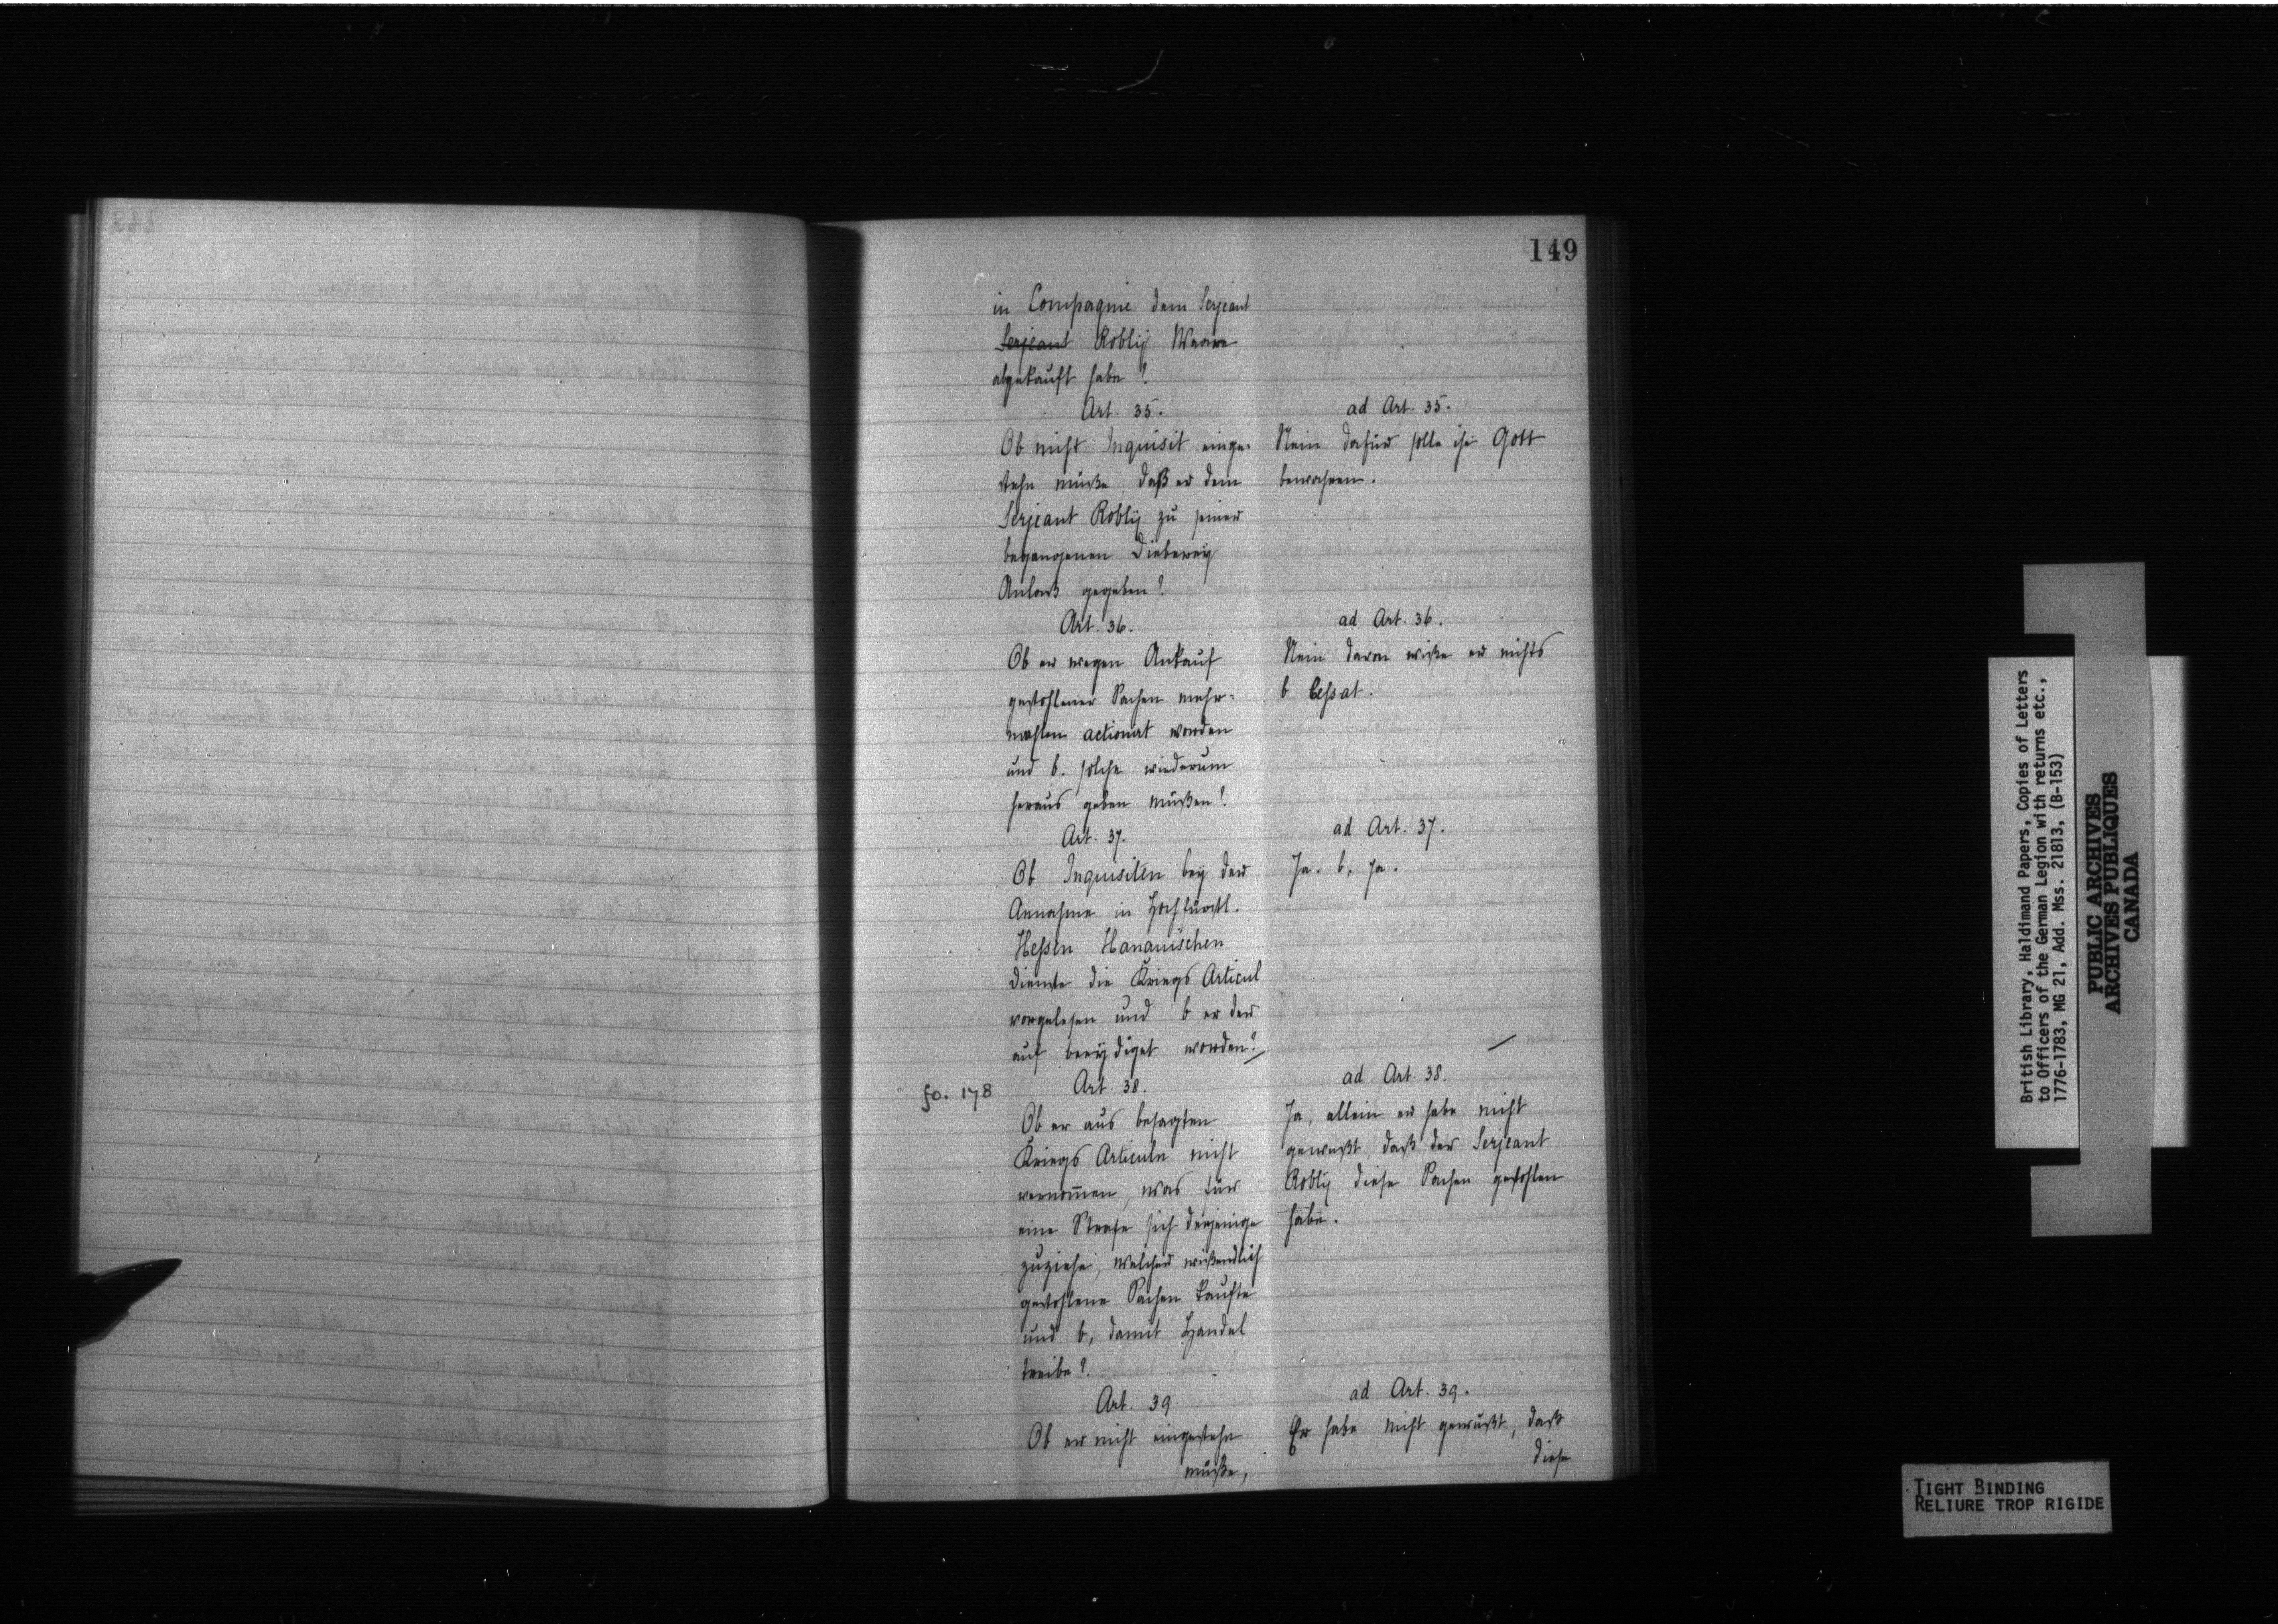 149
in Compagnie dem Serjeant
Serjeant Roblij Waare
abgekauft habe?
Art. 35.
Ob nicht Inquisit einge-
stehn müße, daß er dem
Serjeant Roblij zu seiner
begangenen Dieberey
Anlaß gegeben?
ad Art. 35.
Nein dafür solle ihn Gott
bewahren.
Art. 36.
Ob er wegen Ankauf
gestohlener Sachen mehr-
mahlen actionirt worden
und b. solche wiederum
heraus geben müßen?
ad Art. 36.
Nein davon wiße er nichts
b Ceßat.
Art. 37.
Ob Inquisiten bey der
Annahme in Hochfürstl.
Heßen Hanauischen
Dienste die Kriegs Articul
vorgelesen und b er dar
auf beeydiget worden?
ad Art. 37.
Ja. b, Ja.
fo. 178
Art. 38.
Ob er aus besagten
Kriegs Articuln nicht
vernom̄en, was für
eine Strafe sich derjenige
zuziehe, welcher wißendlich
gestohlene Sachen kaufte
und b, damit Handel
treibe?
ad Art. 38.
Ja, allein er habe nicht
gewußt, daß der Serjeant
Roblij diese Sachen gestohlen
habe.
Art. 39.
Ob er nicht eingestehn
müße,
ad Art. 39.
Er habe nicht gewußt, daß
diese
British Library, Haldimand Papers, Copies of Letters
to Officers of the German Legion with returns etc.,
1776-1783, MG 21, Add. Mss. 21813, (B-153)
PUBLIC ARCHIVES
ARCHIVES PUBLIQUES
CANADA
TIGHT BINDING
RELIURE TROP RIGIDE